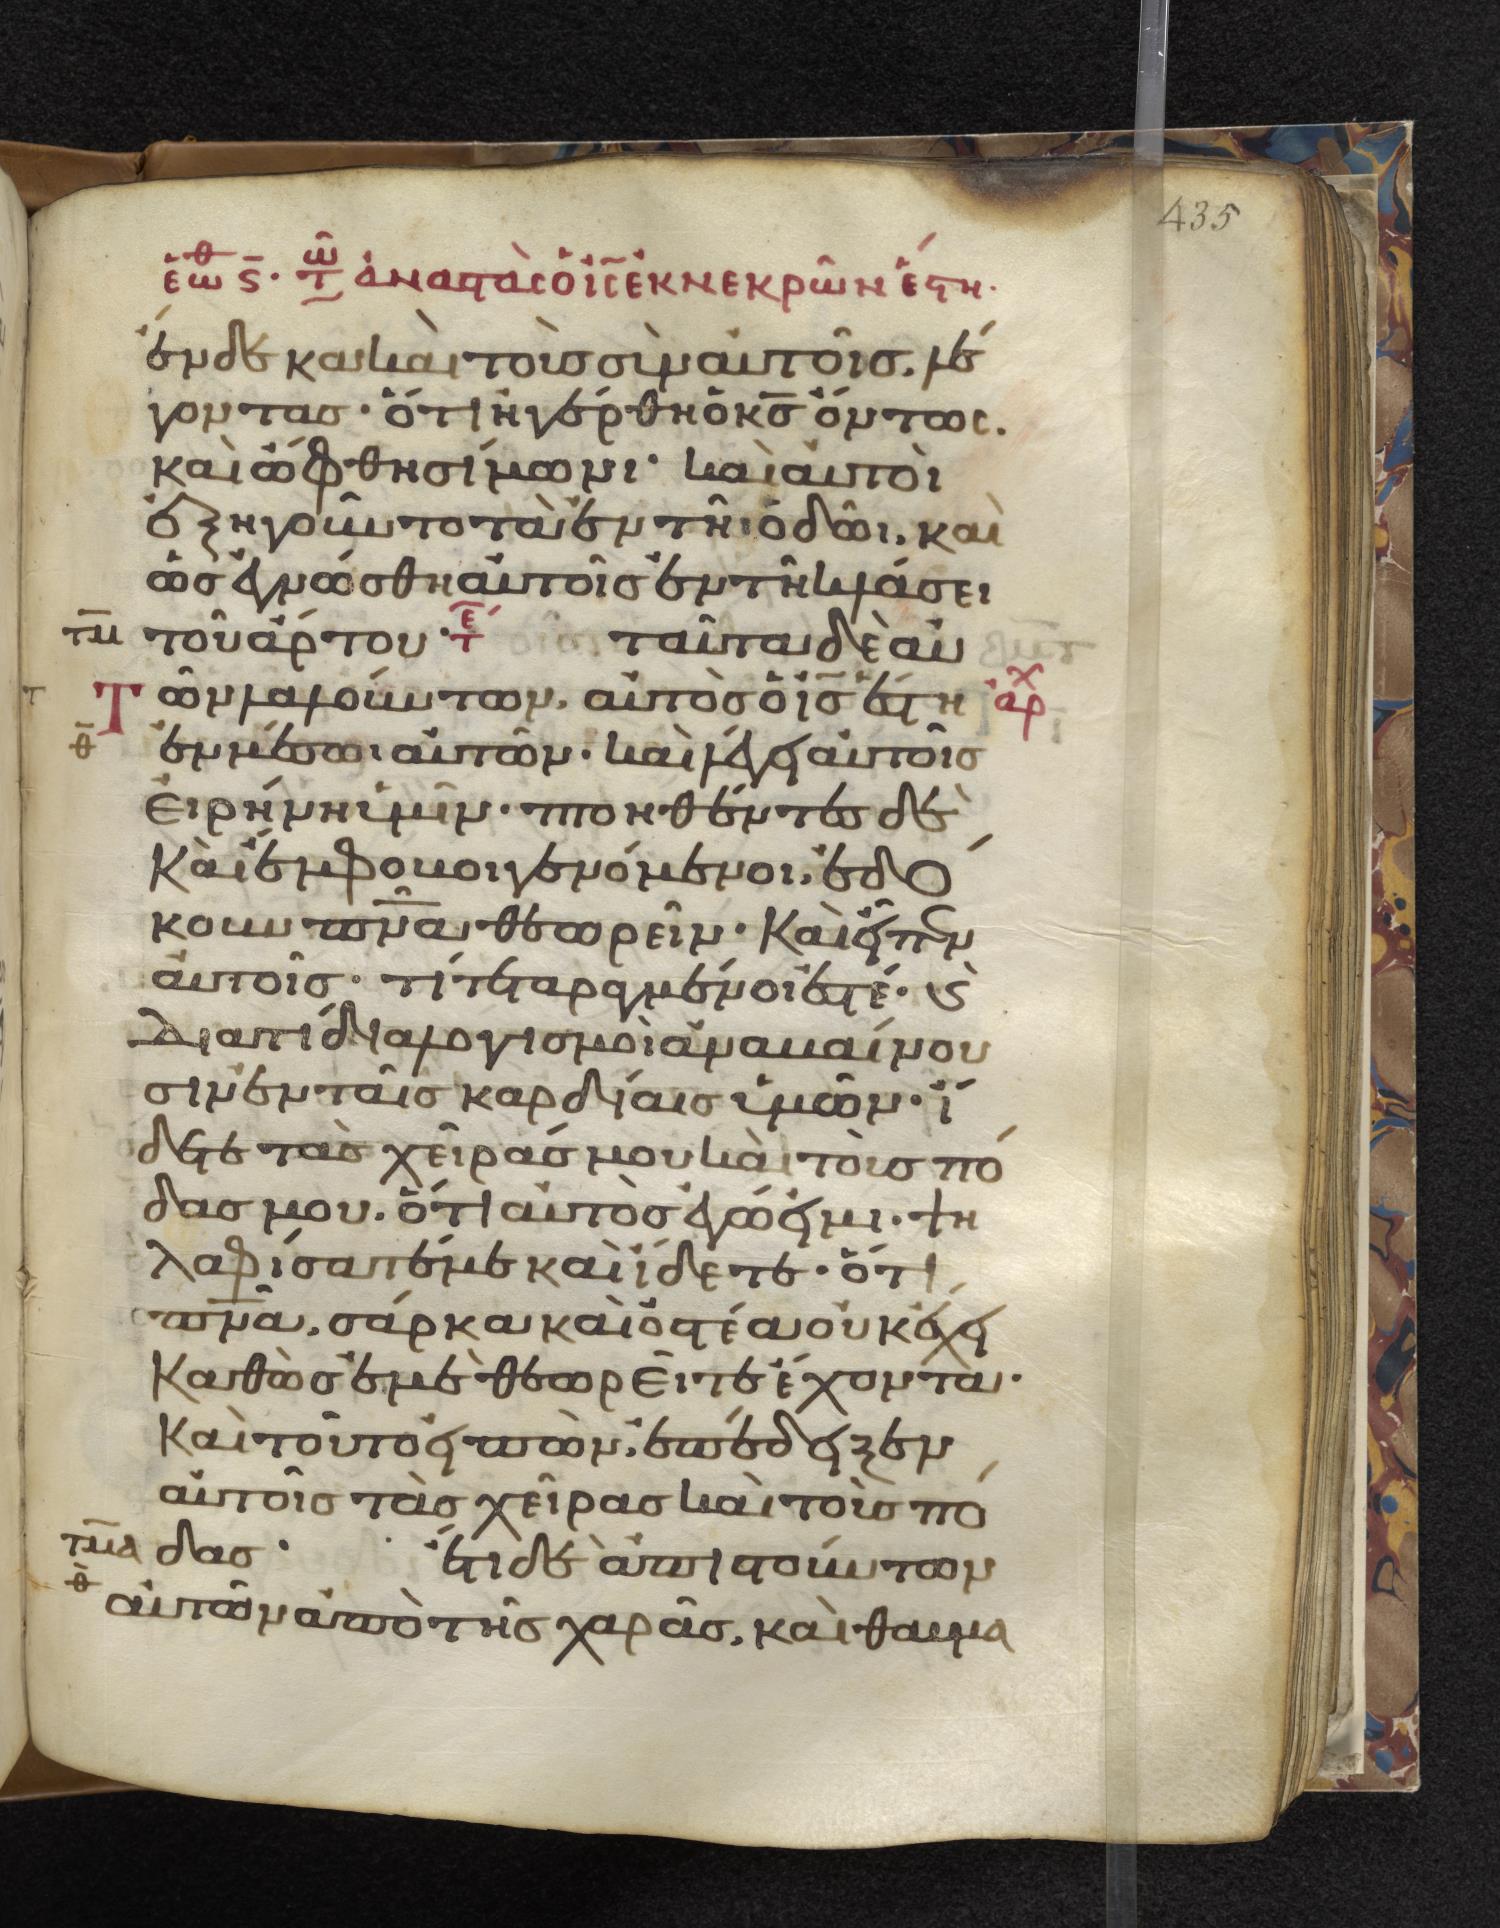 435
ἑωθ ϛ̅· τῶ ἀναστὰς ὁ ι̅ς̅ ἐκ νεκρῶν ἔστη·
ἕνδεκα καὶ τοὺς σὺν αὐτοῖς. λέ
γοντας· ὅτι ἠγέρθη ὁ κ̅ς̅ ὄντως.
καὶ ὤφθη σίμωνι· καὶ αὐτοὶ
ἐξηγοῦντο τὰ ἐν τῆι ὁδῶι. καὶ
ὡς ἐγνώσθη αὐτοῖς ἐν τῆ κλάσει
τ̅μ̅ τοῦ ἄρτου· τε ταῦτα δὲ αὐ
Τῶν λαλούντων. αὐτὸς ὁ ι̅ς̅ ἔστη ἀρχ
θ̅ ἐν μέσωι αὐτῶν· καὶ λέγει αὐτοῖς
Εἰρήνη ὑμῖν· πτοηθέντες δὲ
Καὶ ἔμφοβοι γενόμενοι. ἐδό
κουν π̅ν̅α̅ θεωρεῖν· Καὶ εἶπεν
αὐτοῖς· τί τεταραγμένοι ἐστέ· καὶ
διατί διαλογισμοὶ ἀναβαίνου
σιν ἐν ταῖς καρδίαις ὑμῶν· ἴ
δετε τὰς χεῖράς μου καὶ τοὺς πό
δας μου. ὅτι αὐτὸς ἐγώ εἰμι· ψη
λαφίσατέ με καὶ ἴδετε· ὅτι
π̅ν̅α̅. σάρκα καὶ ὀστέα οὐκ ἔχει
Καθὼς ἐμὲ θεωρεῖτε ἔχοντα·
Καὶ τοῦτο εἰπὼν. ἐπέδειξεν
αὐτοῖς τὰς χεῖρας καὶ τοὺς πό
τ̅μ̅α δας· ἔτι δὲ ἀπιστούντων
θ̅ αὐτῶν ἀπὸ τῆς χαρᾶς. καὶ θαυμα